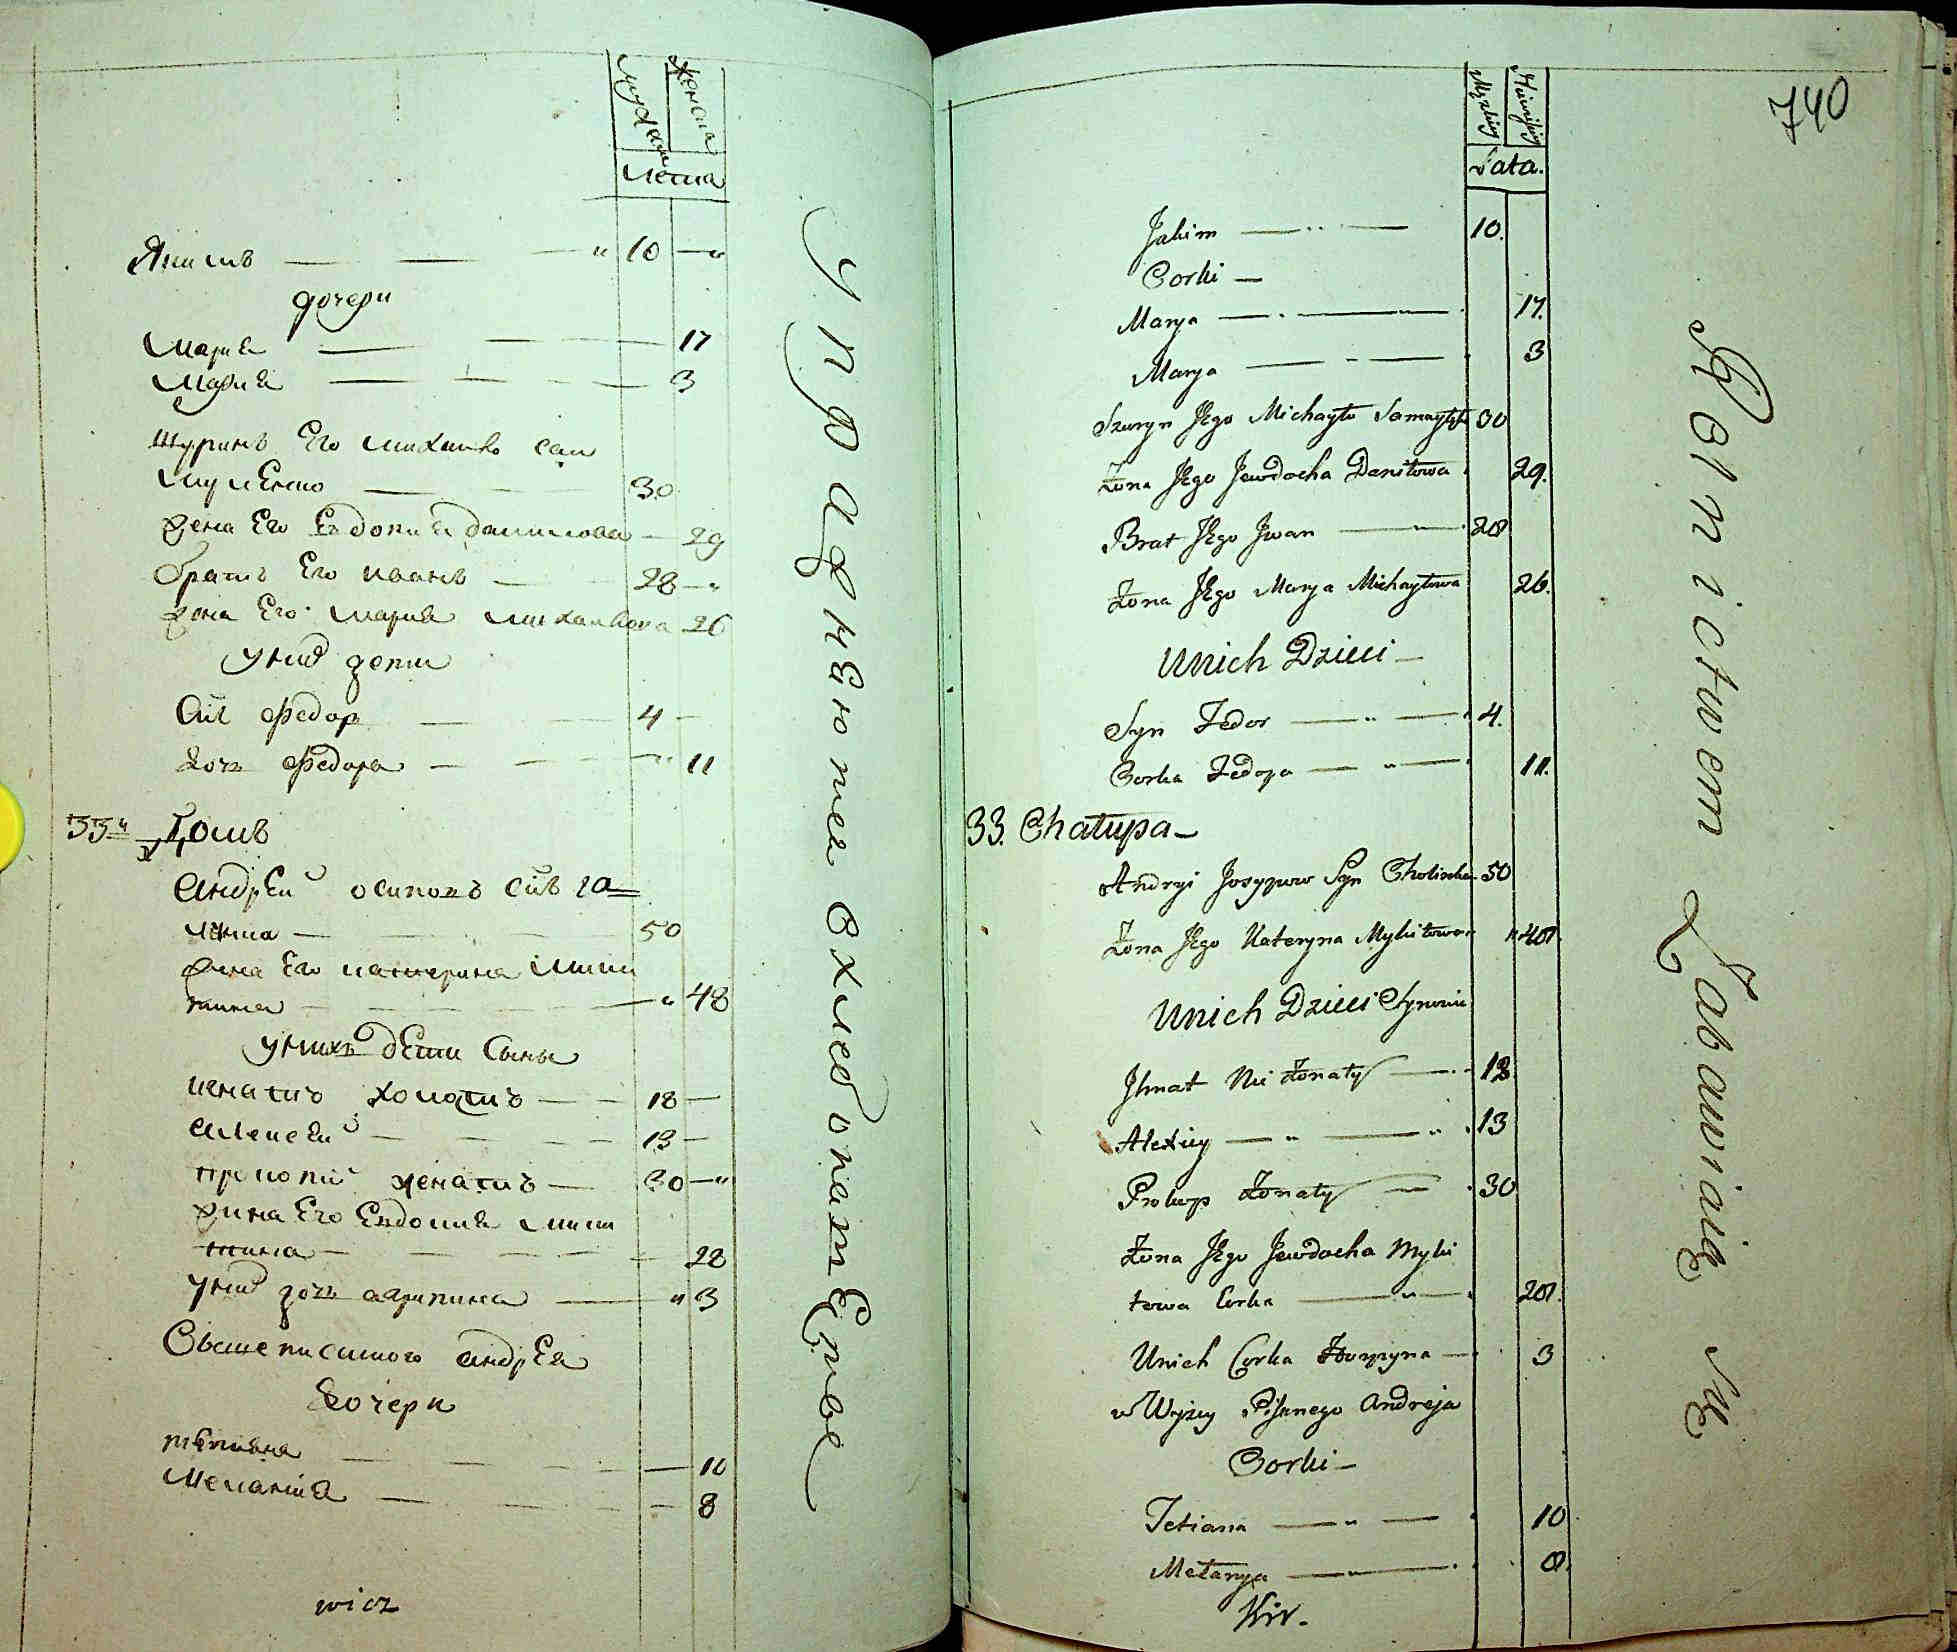 мужска
женска
лета
Якимъ — — — " 10 — "
дочери
Мария — — — 17
Мария — — — 3
шуринъ Его михаило сам
 луленко — 30
жена Его Евдокия данилова — 29
братъ Его иванъ — 28 — "
жена Его мария михаилова 26
у них дети
Сн̃ъ Федор — — 4 —
дочь Федора — — — " 11
33й Домъ
Андрей осиповъ сн̃ъ га=
лкина — 50
жена Его катерина Мики
тина — — — " 48
у нихъ дети Сыны
игнатъ холотъ — — 18 —
Алексей — — — 13 —
прокопий женатъ — 30 — "
жена Его Евдокия мики
тина — — — — 28
у них дочь агрипина — " 3
Вышеписаного андрея
Дочери
тетияна — — — 10
Мелания — — — — 8
wicz
упражняются в хлебопашестве
740
Męzkiey
Żeńskiey
Lata.
Jakim — " — 10.
Corki —
Marya — " — 17.
Marya — " — 3
Szuryn Jego Michayło Samayły 30
Żona Jego Jewdocha Daniłowa 29.
Brat Jego Jwan — " — 28
Żona Jego Marya Michayłowa 26.
Unich Dzieci —
Syn Fedor — " — 4.
Corka Fedora — " — 11.
33. Chałupa —
Andryi Josypow Syn Cholinka 50
Żona Jego Kateryna Mykitowa " 48.
Unich Dzieci Synowie
Jhnat Nie Żonaty — 18
Alexiey — " — " 13
Prokop Żonaty — 30
Żona Jego Jewdocha Myki
towa Corka — " — 28.
Unich Corka — 3
w Wyżey Pisanego Andreja
Corki —
Tetiana — " — 10
Mełanya — " — 8.
Kir.
Rolnictwem Zabawiaię się